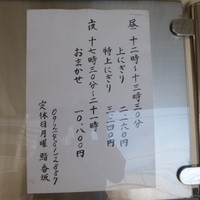 昼 十二時〜十三時三〇分
上にぎり 二、二六〇円
特上にぎり 三、二四〇円
夜 十七時三〇分〜二十一時
おまかせ 一〇、八〇〇円
定休日月曜 鮨 春坂